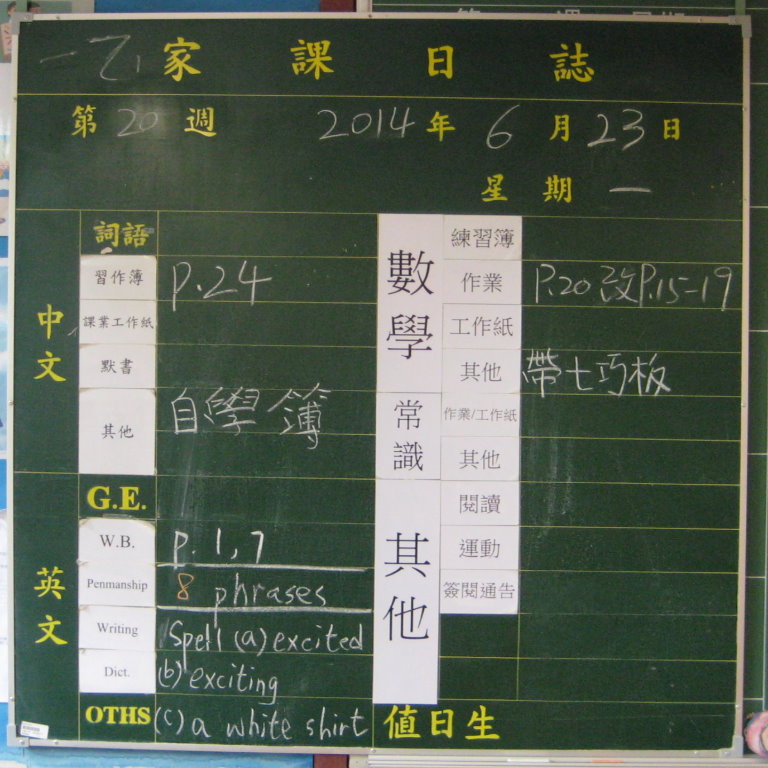 一乙 家課日誌
第 20 週 2014 年 6 月 23 日
星期 一
中文
詞語
習作簿 P.24
課業工作紙
默書
其他 自學簿
英文
G.E.
W.B. P. 1, 7
Penmanship 8 phrases
Writing Spell (a) excited
Dict. (b) exciting
OTHS (c) a white shirt
數學
練習簿
作業 P.20 改P.15-19
工作紙
其他 帶七巧板
常識
作業/工作紙
其他
其他
閱讀
運動
簽閱通告
值日生